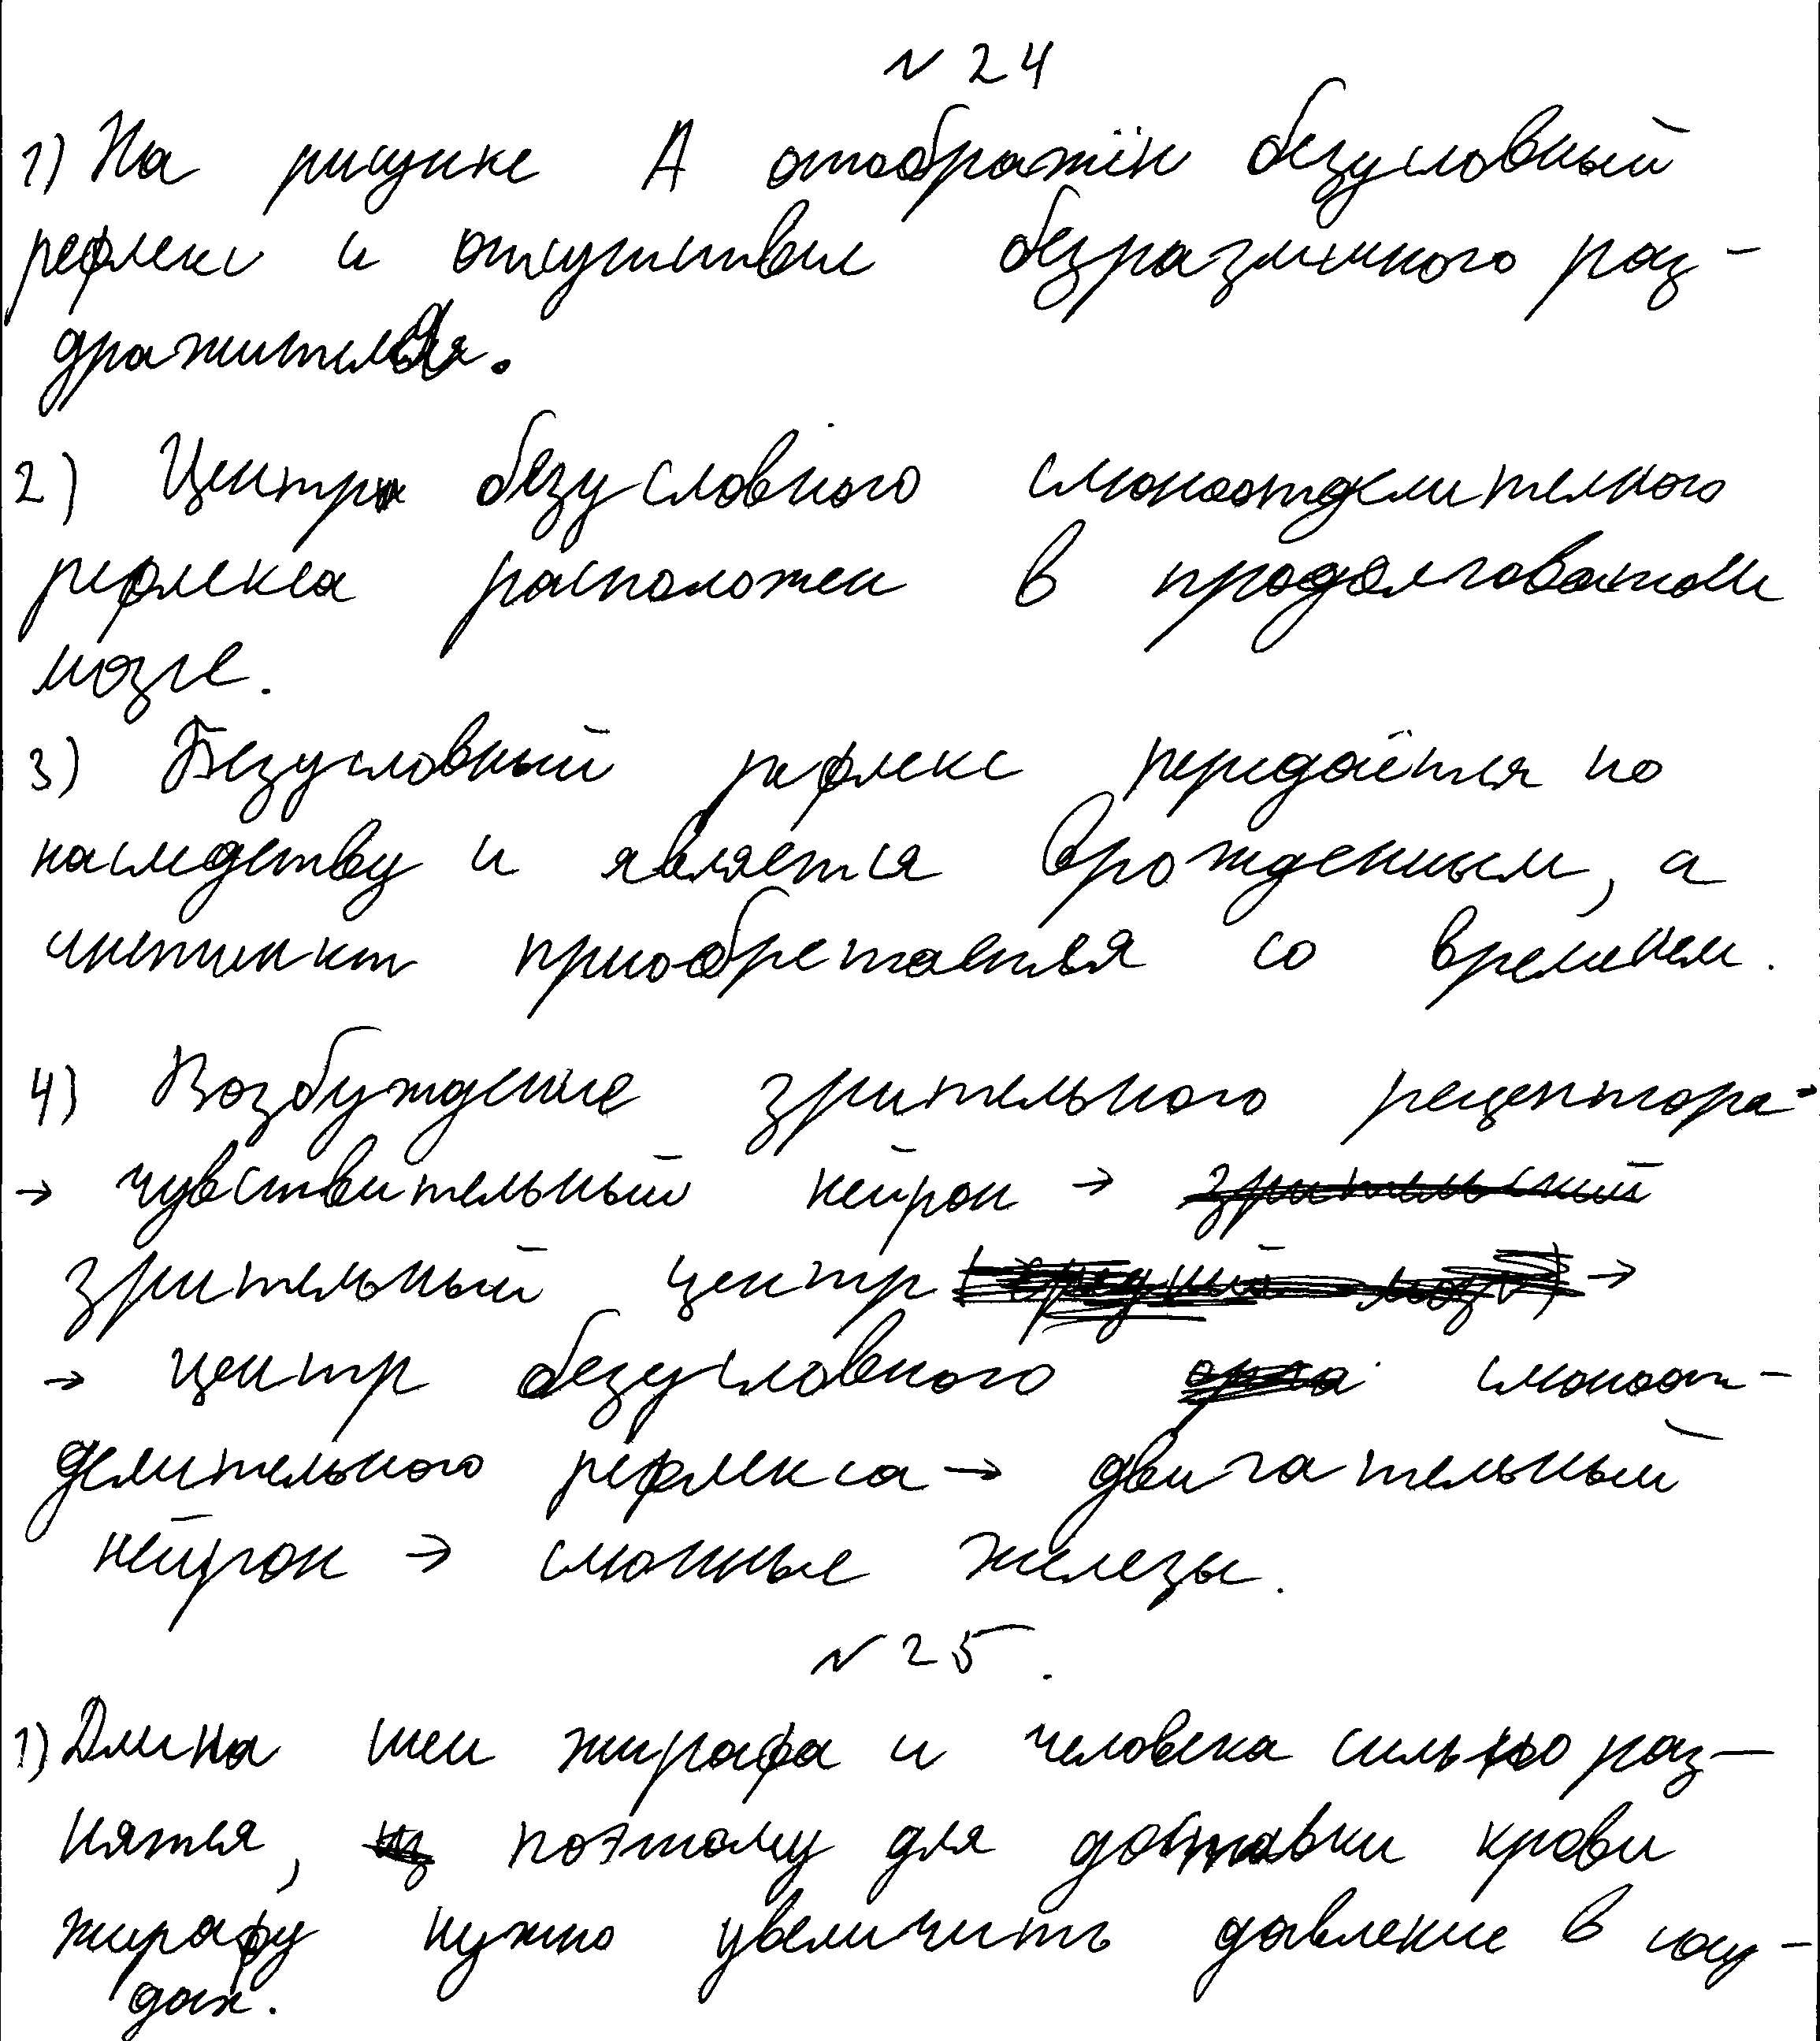 N 24
1) На рисунке А отображён безусловный
рефлекс и отсутствие безразличного раз-
дражителя.
2) Центр безусловного слюноотделителного
рефлекса расположен в продолговатом
мозге.
3) Безусловный рефлекс передаётся по
наследству и является врожденным, а
инстинкт приобретается со временем.
4) Возбуждение зрительного рецептора →
→ чувствительный нейрон → зрительский
зрительный центр (средний мозг) →
→ центр безусловного слюноот-
делительного рефлекса → двигательный
нейрон → слюнные железы.
N 25.
1) Длина шеи жирафа и человека сильно раз-
нятся, поэтому для доставки крови
жирафу нужно увеличить давление в сосу-
дах.